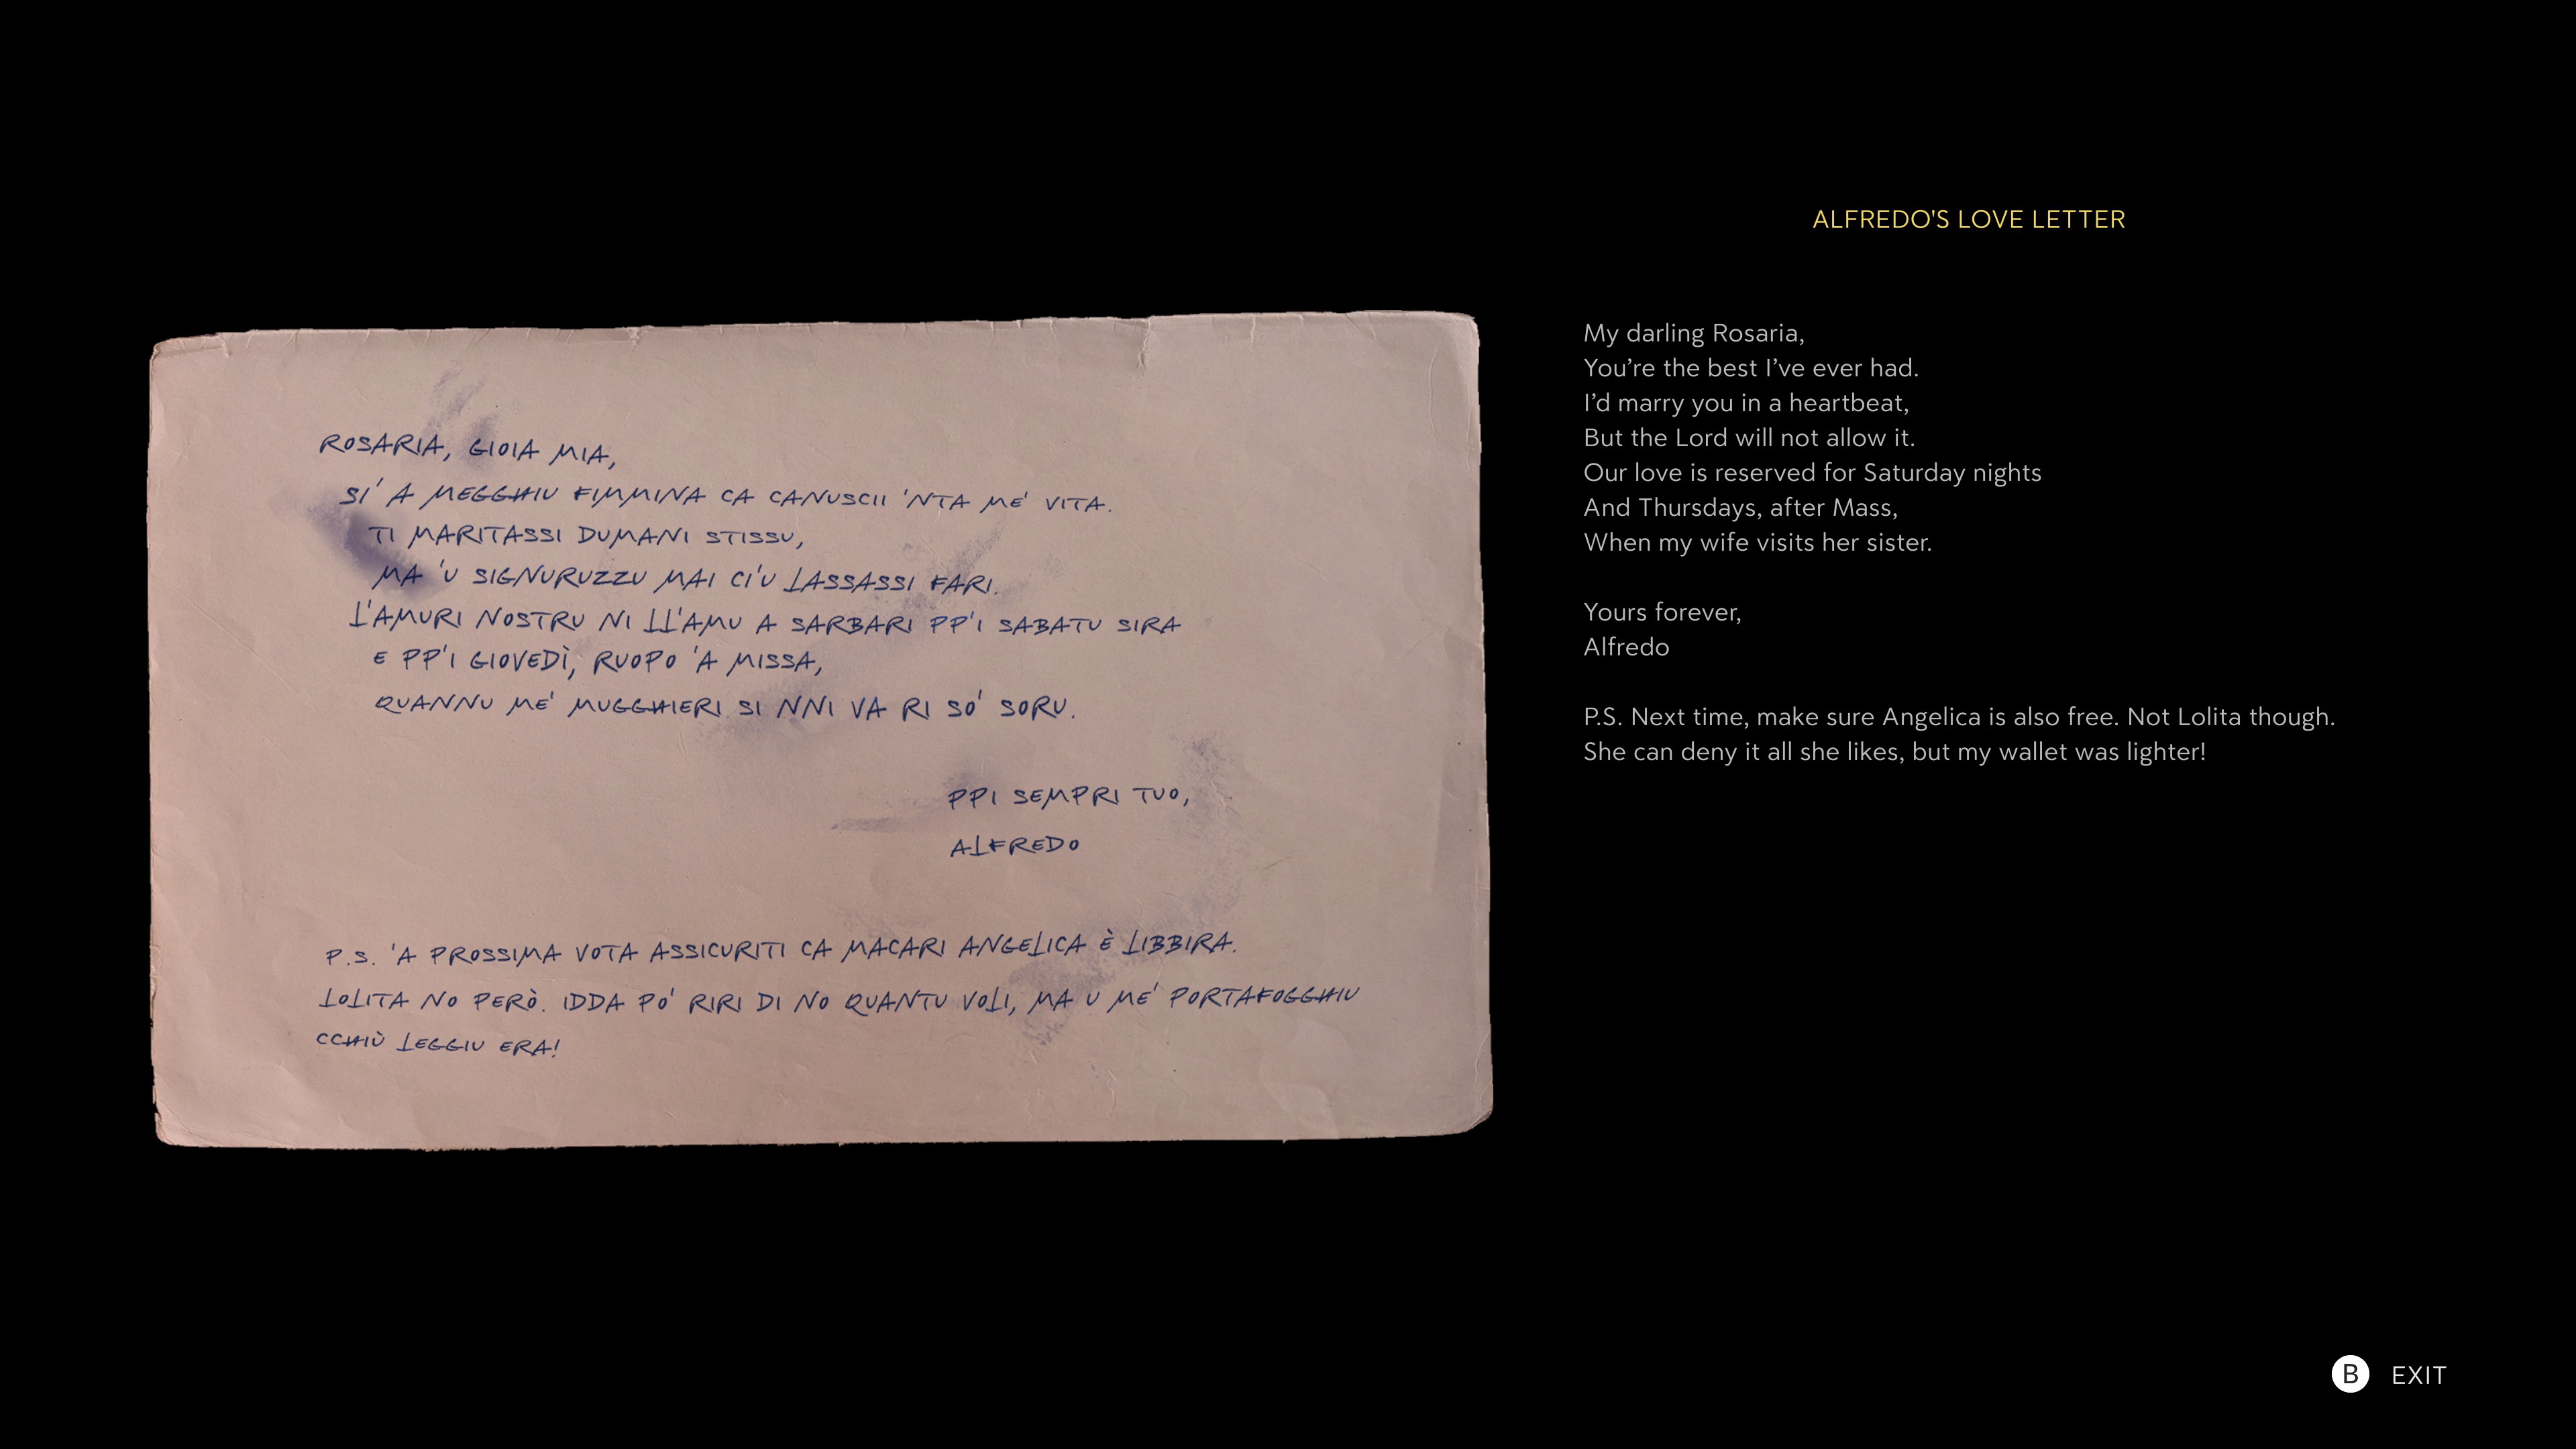 ROSARIA, GIOIA MIA,
SI' A MEGGHIU FIMMINA CA CANUSCII 'NTA ME' VITA.
TI MARITASSI DUMANI STISSU,
MA 'U SIGNURUZZU MAI CI'U LASSASSI FARI.
L'AMURI NOSTRU NI LL'AMU A SARBARI PP'I SABATU SIRA
E PP'I GIOVEDÌ, RUOPO 'A MISSA,
QUANNU ME' MUGGHIERI SI NNI VA RI SO' SORU.
PPI SEMPRI TUO,
ALFREDO
P.S. 'A PROSSIMA VOTA ASSICURITI CA MACARI ANGELICA È LIBBIRA.
LOLITA NO PERÒ. IDDA PO' RIRI DI NO QUANTU VOLI, MA U ME' PORTAFOGGHIU
CCHIÙ LEGGIU ERA!
ALFREDO'S LOVE LETTER
My darling Rosaria,
You’re the best I’ve ever had.
I’d marry you in a heartbeat,
But the Lord will not allow it.
Our love is reserved for Saturday nights
And Thursdays, after Mass,
When my wife visits her sister.
Yours forever,
Alfredo
P.S. Next time, make sure Angelica is also free. Not Lolita though.
She can deny it all she likes, but my wallet was lighter!
B EXIT